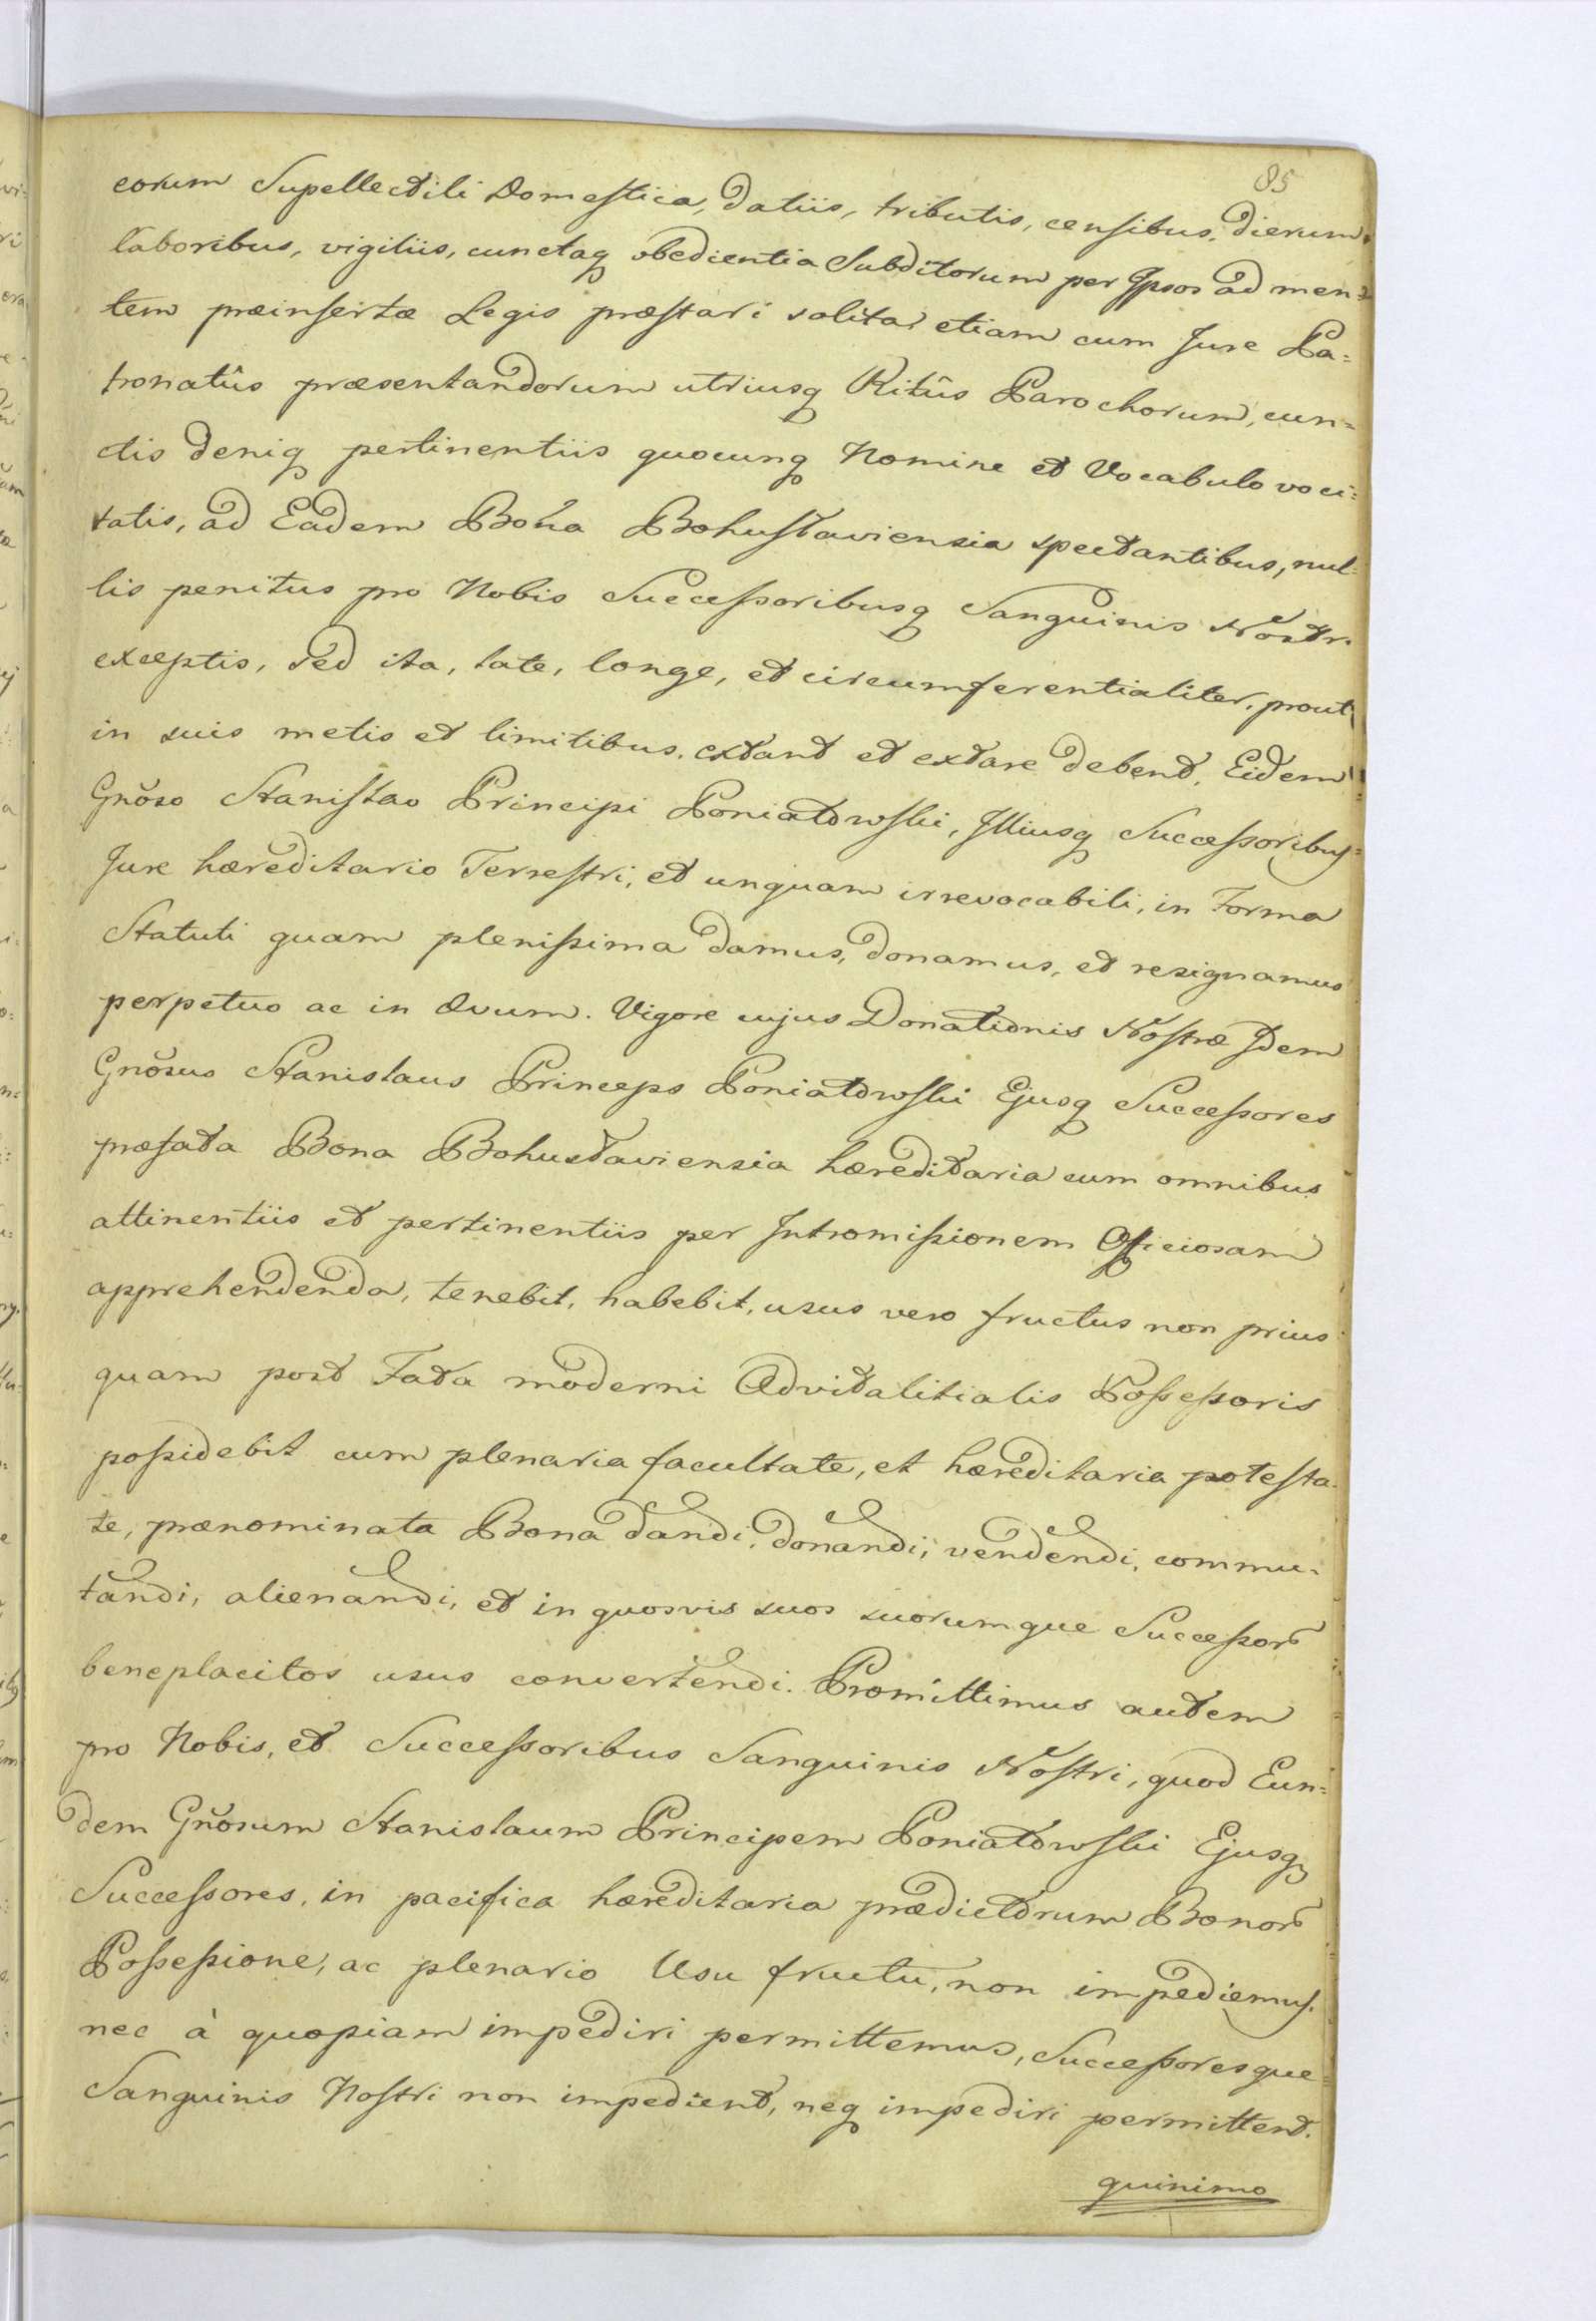 85
eorum Supellectili Domestica, datiis, tributis, censibus, dierum
laboribus, vigiliis, cunctaq obedientia Subditorum per Ipsos ad men=
tem præinsertæ Legis præstari solita, etiam cum Jure Pa=
tronatûs præsentandorum utriusq Ritûs Parochorum, cun=
ctis deniq pertinentiis quocunq Nomine et Vocabulo voci=
tatis, ad Eadem Bona Bohuslaviensia spectantibus, nul=
lis penitus pro Nobis Successoribusq Sanguinis Nostri
exceptis, sed ita, late, longe, et circumferentialiter, prout
in suis metis et limitibus extant et extare debent, Eidem
Gnõso Stanislao Principi Poniatowski, Illiusq Successoribus
Jure hæreditario Terrestri, et unquam irrevocabili, in Forma
Statuti quam plenissima damus, donamus, et resignamus
perpetuo ac in ævum. Vigore cujus Donationis Nostræ Idem
Gnõsus Stanislaus Princeps Poniatowski Ejusq Successores
præfata Bona Bohuslaviensia hæreditaria cum omnibus
attinentiis et pertinentiis per Intromissionem Officiosam
apprehendenda, tenebit, habebit, usus vero fructus non prius
quam post Fata moderni Advitalitialis Possessoris
possidebit cum plenaria facultate, et hæreditaria potesta=
te, prænominata Bona dandi, donandi, vendendi, commu=
tandi, alienandi, et in quosvis suos suorumque Successorũ
beneplacitos usus convertendi. Promittimus autem
pro Nobis, et Successoribus Sanguinis Nostri, quod Eun=
dem Gnõsum Stanislaum Principem Poniatowski Ejusq
Successores, in pacifica hæreditaria prædictorum Bonorũ
Possessione, ac plenario Usu fructu, non impediemus,
nec à quopiam impediri permittemus, Successoresque
Sanguinis Nostri non impedient, neq impediri permittent.
quinimo